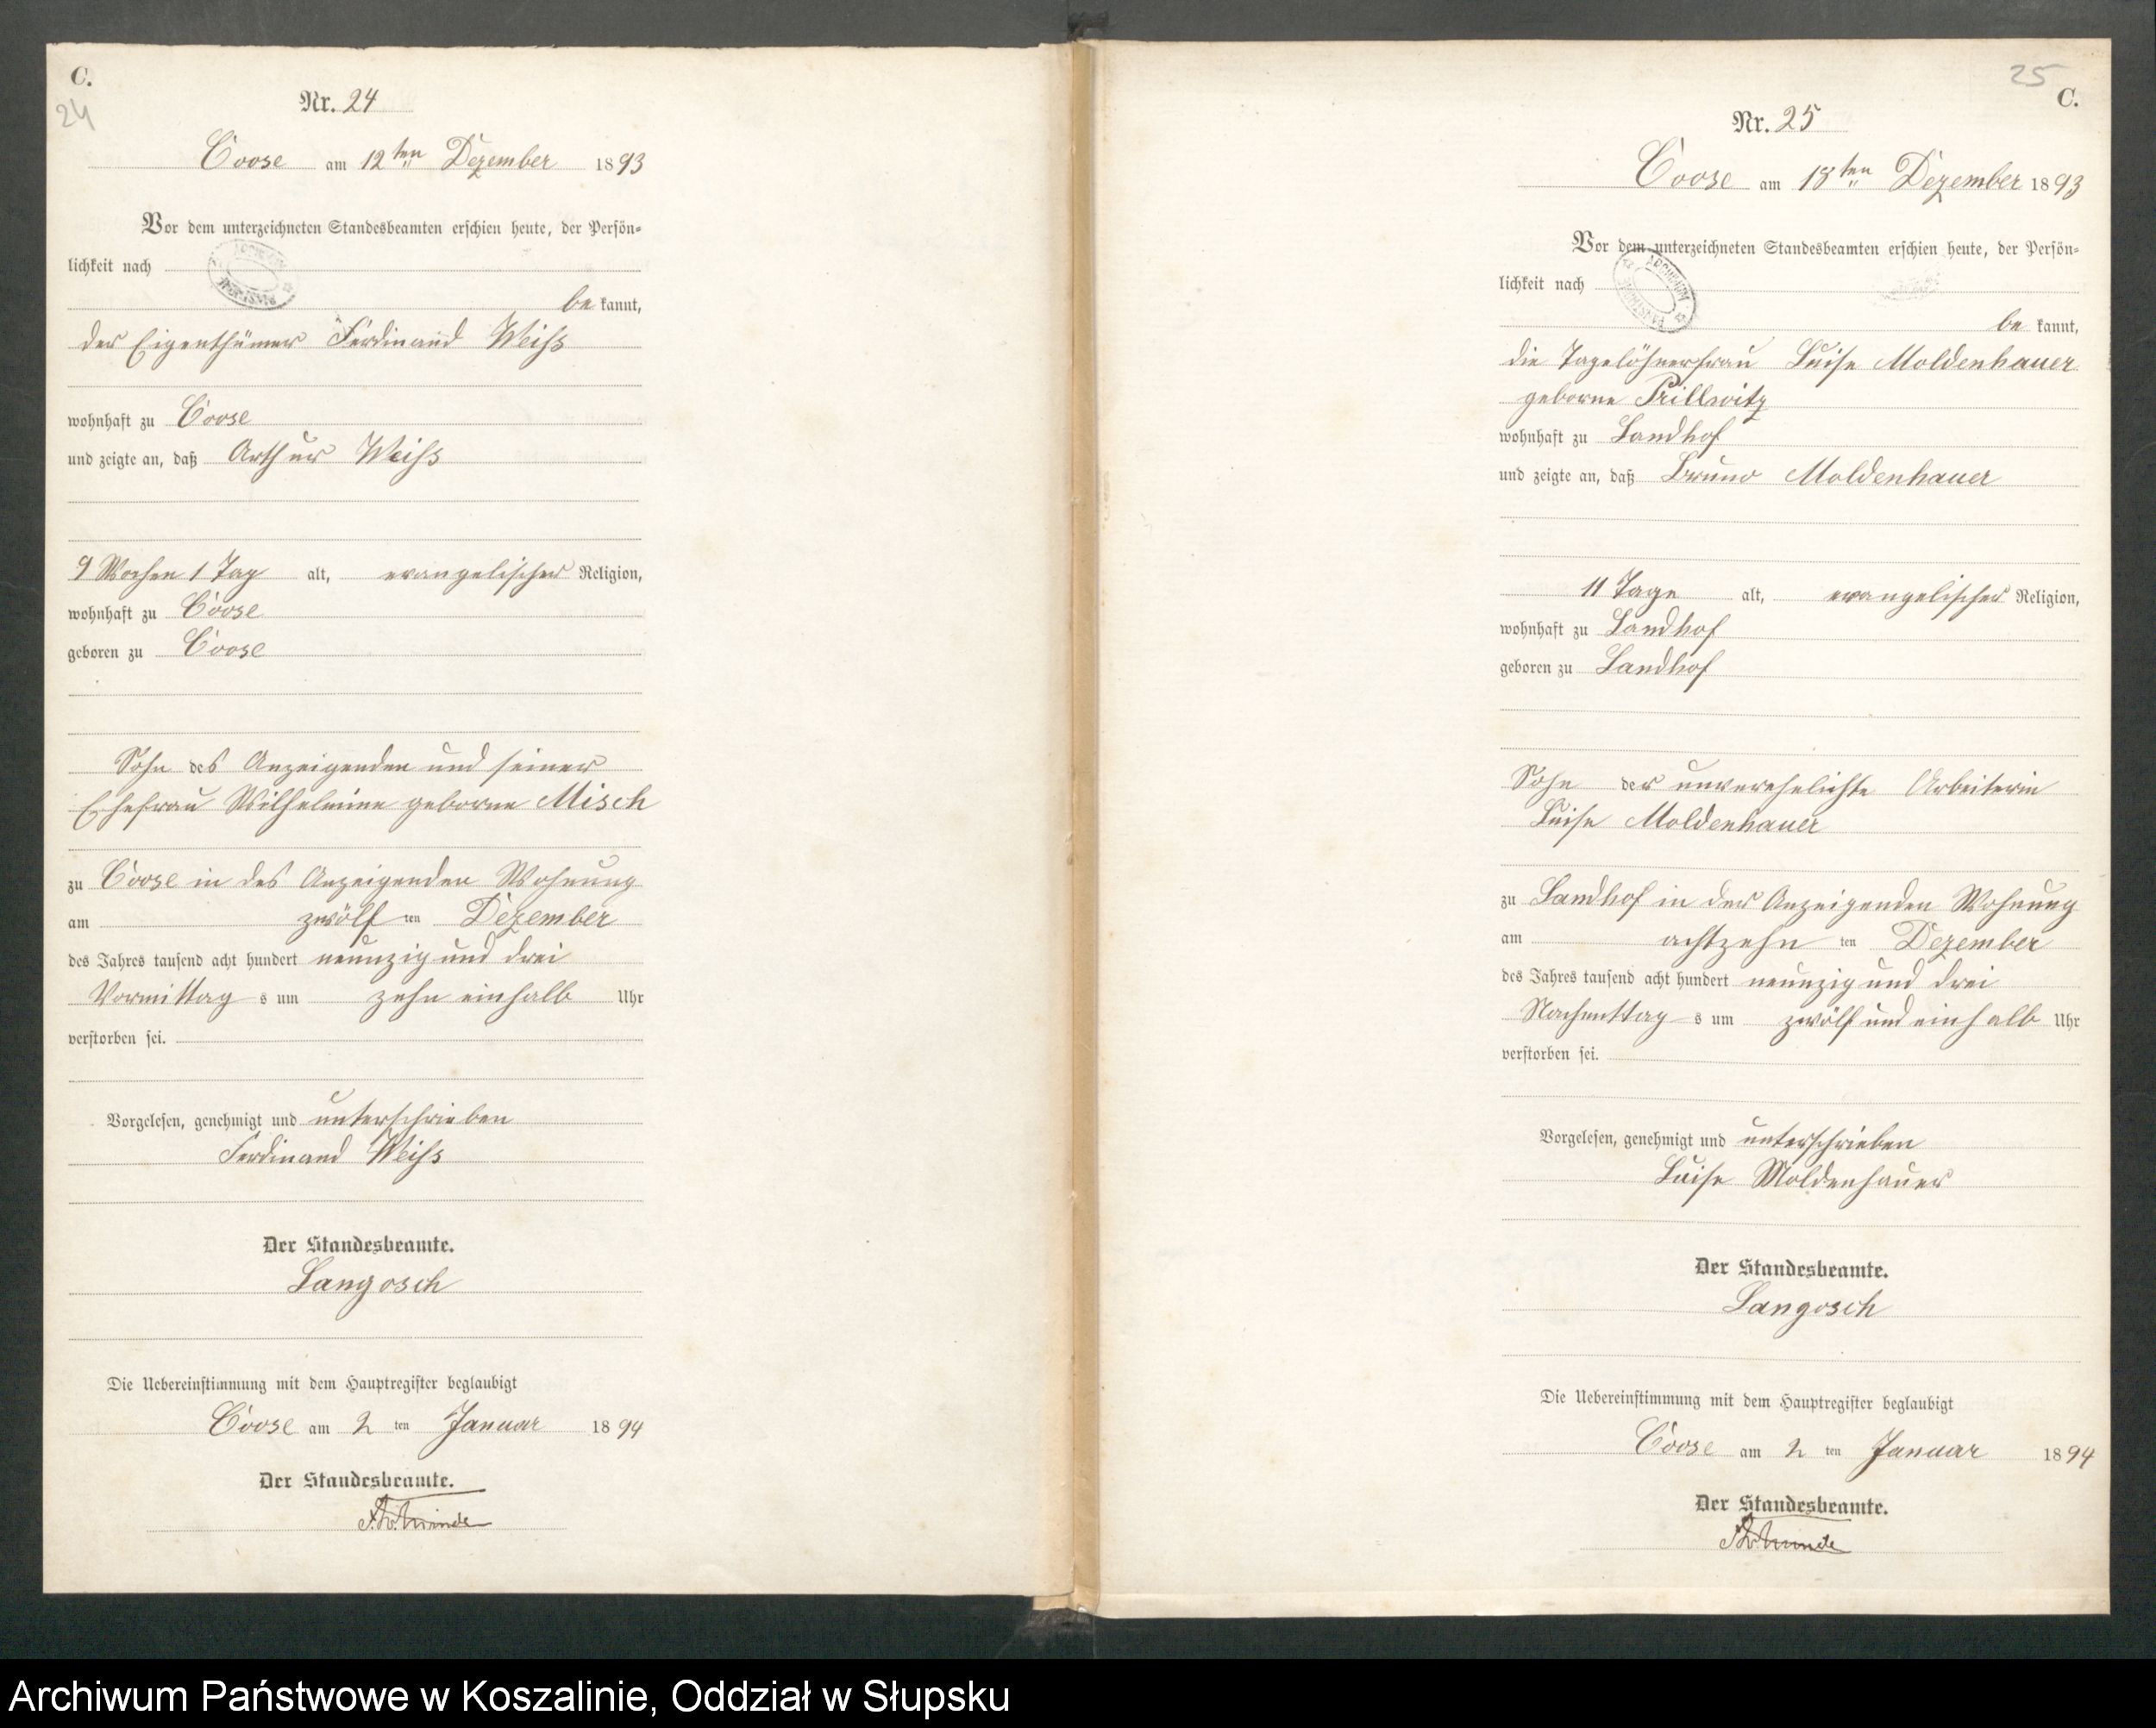 C.
24
Nr. 24
Coose am 12ten Dezember 1893
Vor dem unterzeichneten Standesbeamten erschien heute, der Persön-
lichkeit nach
be kannt,
der Eigenthümer Ferdinand Weiß
wohnhaft zu Coose
und zeigte an, daß Arthur Weiß
9 Wochen 1 Tag alt, evangelischer Religion,
wohnhaft zu Coose
geboren zu Coose
Sohn des Anzeigenden und seiner
Ehefrau Wilhelmine geborne Misch
zu Coose in des Anzeigenden Wohnung
am zwölf ten Dezember
des Jahres tausend acht hundert neunzig und drei
Vormittag s um zehn einhalb Uhr
verstorben sei.
Vorgelesen, genehmigt und unterschrieben
Ferdinand Weiß
Der Standesbeamte.
Langosch
Die Uebereinstimmung mit dem Hauptregister beglaubigt
Coose am 2 ten Januar 1894
Der Standesbeamte.
25
C.
Nr. 25
Coose am 18ten Dezember 1893
Vor dem unterzeichneten Standesbeamten erschien heute, der Persön-
lichkeit nach
ARCHIWUM
be kannt,
die Tagelöhnerfrau Luise Moldenhauer
geborne Prillwitz
wohnhaft zu Landhof
und zeigte an, daß Bruno Moldenhauer
11 Tage alt, evangelischer Religion,
wohnhaft zu Landhof
geboren zu Landhof
Sohn der unverehelichte Arbeiterin
Luise Moldenhauer
zu Landhof in der Anzeigenden Wohnung
am achtzehn ten Dezember
des Jahres tausend acht hundert neunzig und drei
Nachmittag s um zwölf und einhalb Uhr
verstorben sei.
Vorgelesen, genehmigt und unterschrieben
Luise Moldenhauer
Der Standesbeamte.
Langosch
Die Uebereinstimmung mit dem Hauptregister beglaubigt
Coose am 2 ten Januar 1894
Der Standesbeamte.
Archiwum Państwowe w Koszalinie, Oddział w Słupsku